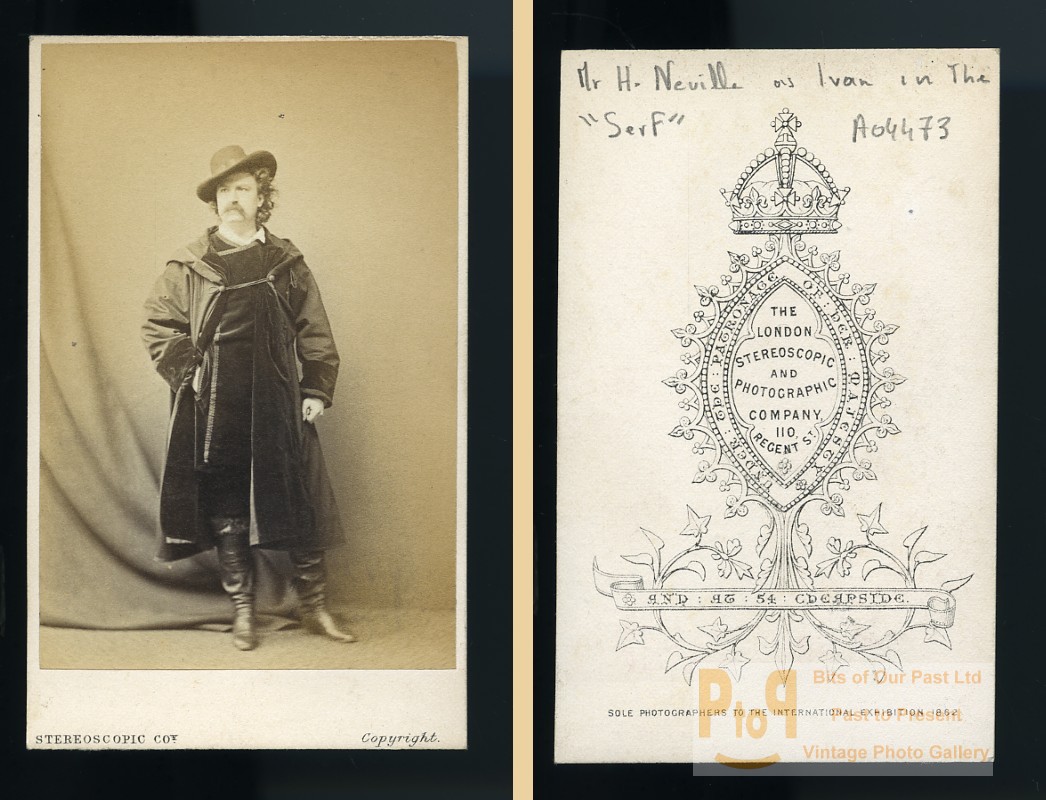 STEREOSCOPIC COY
Copyright.
Mr H. Neville as Ivan in The
"Serf"
A04473
UNDER : THE : PATRONAGE : OF : HER : MAJESTY
THE
LONDON
STEREOSCOPIC
AND
PHOTOGRAPHIC
COMPANY,
110,
REGENT ST.
AND : AT : 54 : CHEAPSIDE.
SOLE PHOTOGRAPHERS TO THE INTERNATIONAL EXHIBITION 1862
PtoP
Bits of Our Past Ltd
Past to Present
Vintage Photo Gallery